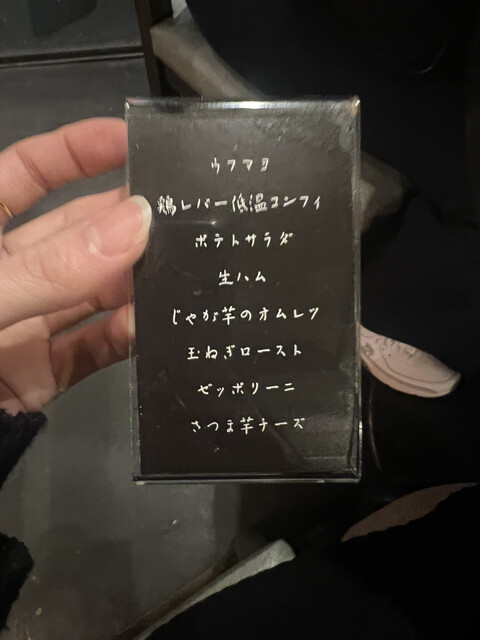 ウフマヨ
鶏レバー低温コンフィ
ポテトサラダ
生ハム
じゃが芋のオムレツ
玉ねぎロースト
ゼッポリーニ
さつま芋チーズ